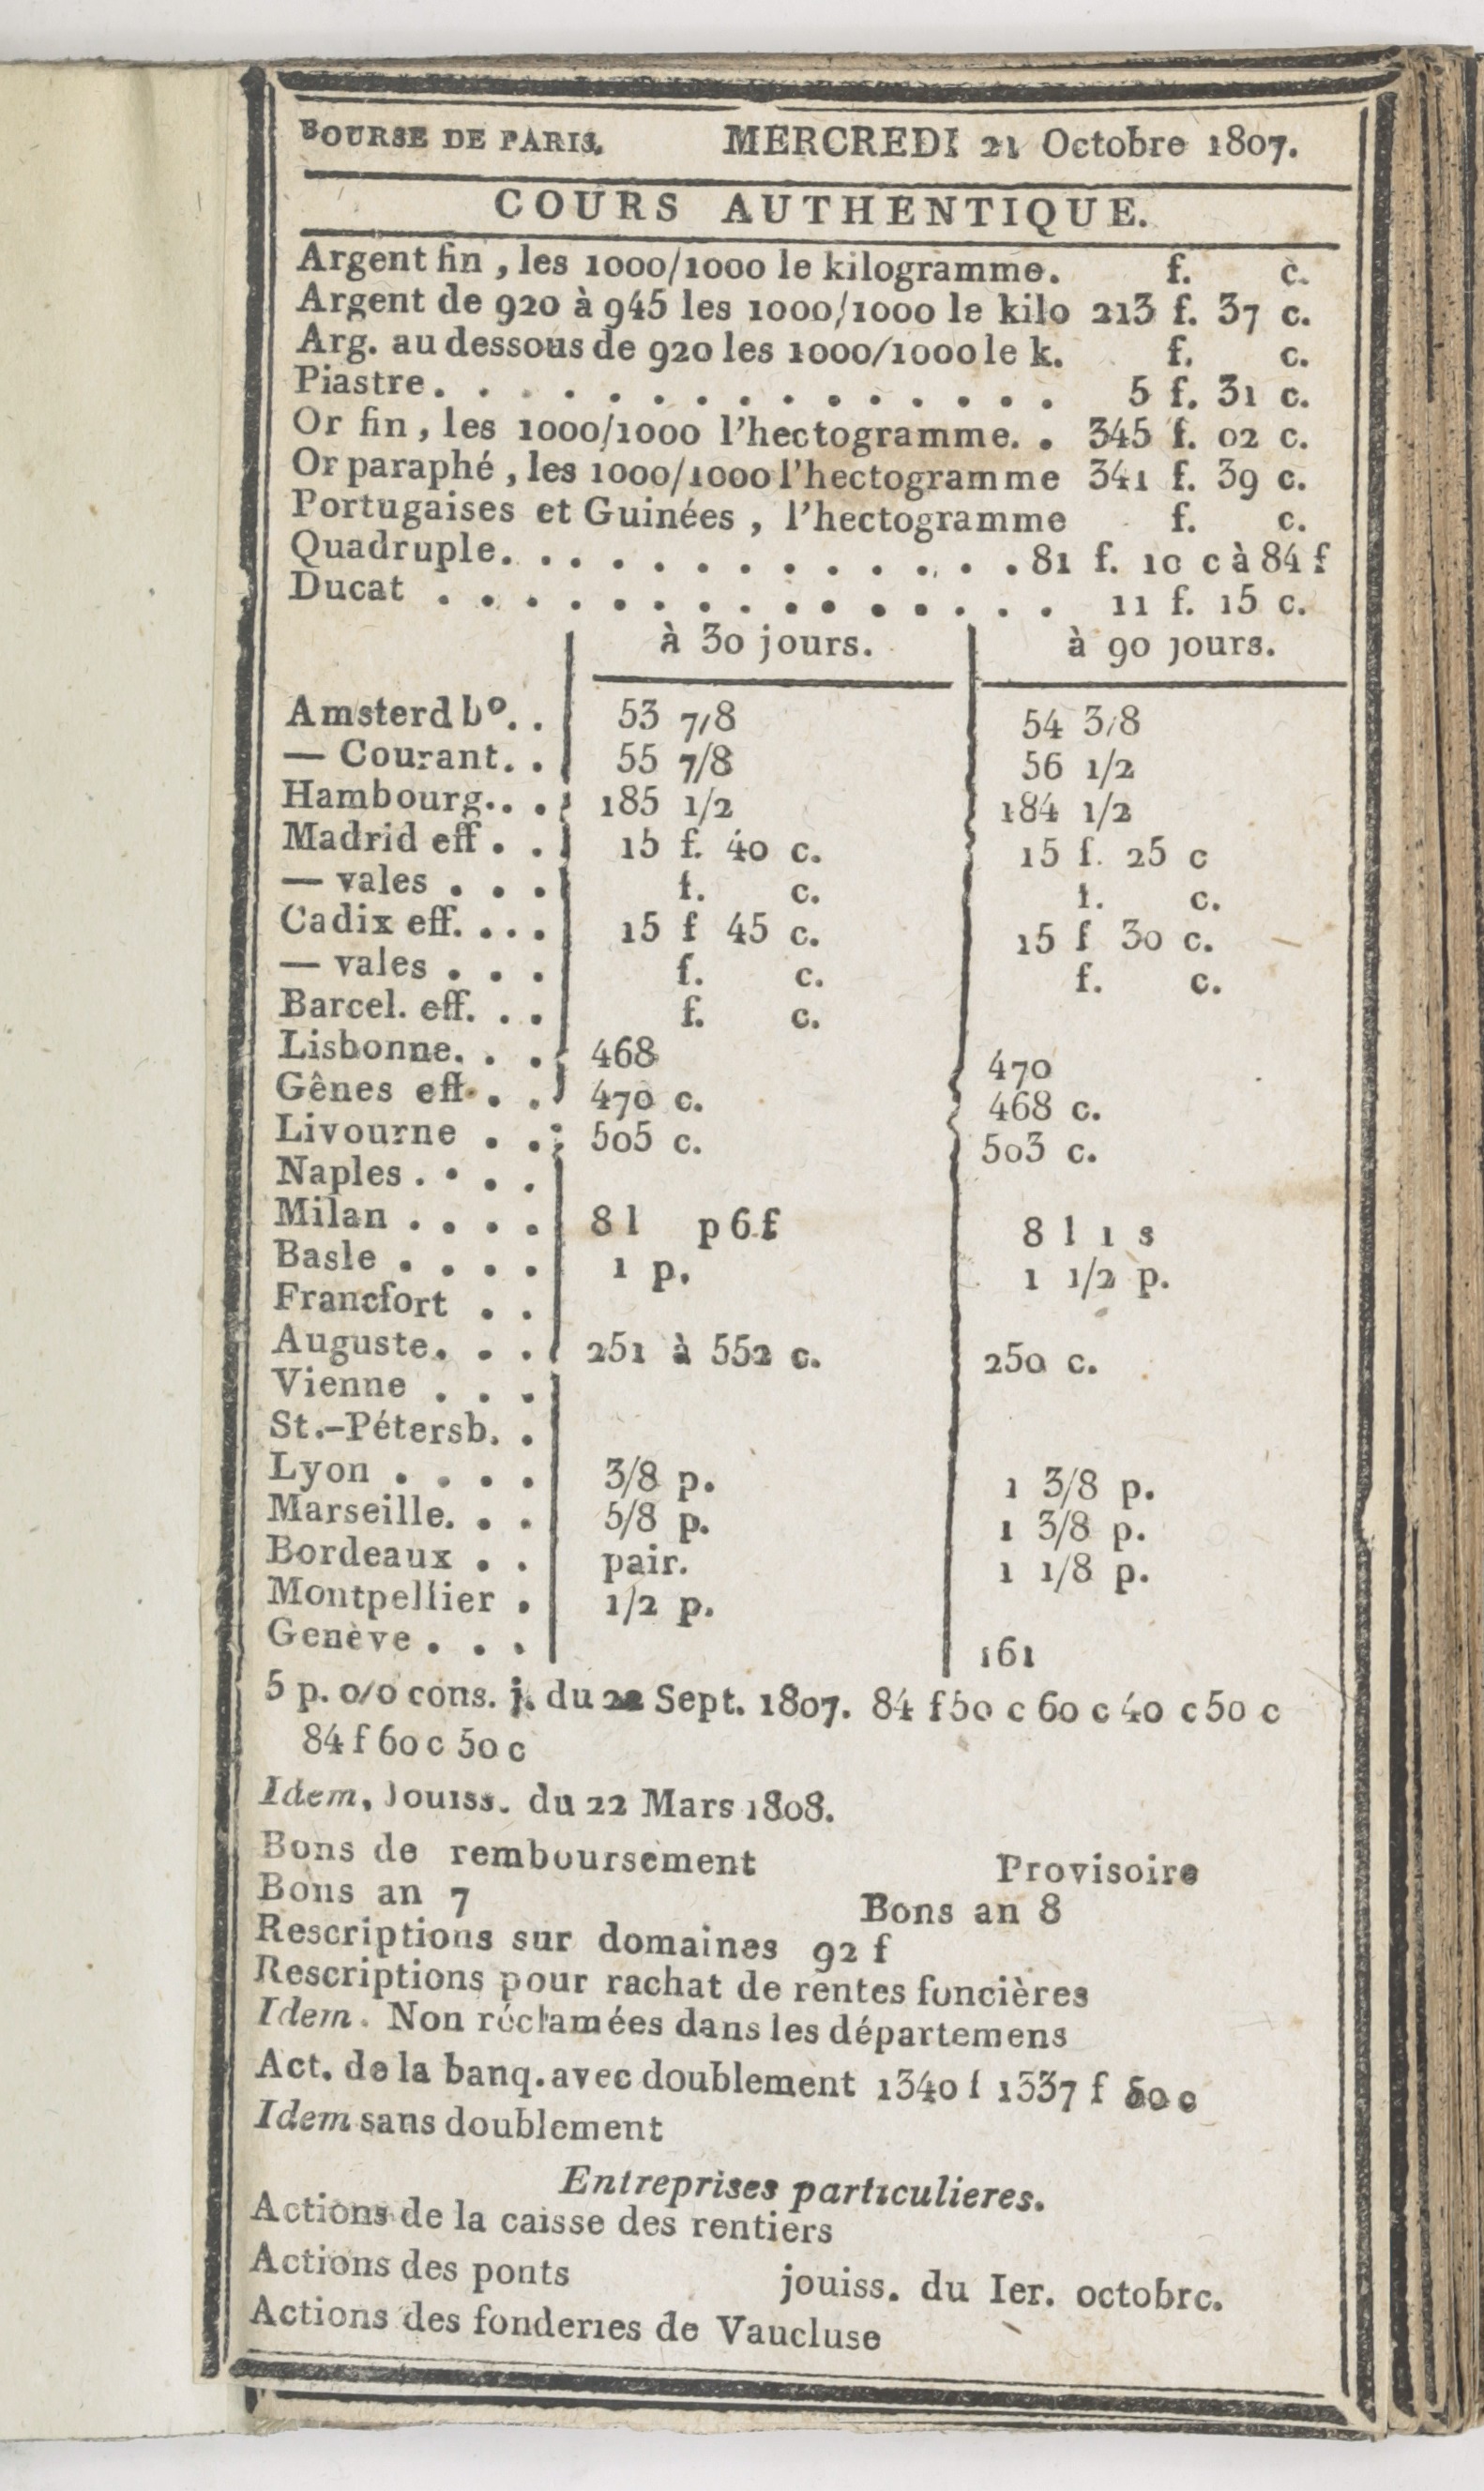 BOURSE DE PARIS. MERCREDI 21 Octobre 1807.
COURS AUTHENTIQUE.
Argent fin , les 1000/1000 le kilogramme. f. c.
Argent de 920 à 945 les 1000/1000 le kilo 213 f. 37 c.
Arg. au dessous de 920 les 1000/1000 le k. f. c.
Piastre. . . . . . . . . . . . . . . 5 f. 31 c.
Or fin , les 1000/1000 l'hectogramme. . 345 f. 02 c.
Or paraphé , les 1000/1000 l'hectogramme 341 f. 39 c.
Portugaises et Guinées , l'hectogramme f. c.
Quadruple. . . . . . . . . . . . . 81 f. 10 c à 84 f
Ducat . . . . . . . . . . . . . . . 11 f. 15 c.
à 30 jours. à 90 jours.
Amsterd bº. . 53 7/8 54 3/8
— Courant. . 55 7/8 56 1/2
Hambourg. . . 185 1/2 184 1/2
Madrid eff . . 15 f. 40 c. 15 f. 25 c
— vales . . . f. c. f. c.
Cadix eff. . . . 15 f 45 c. 15 f 30 c.
— vales . . . f. c. f. c.
Barcel. eff. . . f. c.
Lisbonne. . . 468 470
Gênes eff. . . 470 c. 468 c.
Livourne . . 505 c. 503 c.
Naples . . . .
Milan . . . . 8 l p 6 f 8 l 1 s
Basle . . . . 1 p. 1 1/2 p.
Francfort . .
Auguste. . . 251 à 552 c. 250 c.
Vienne . . .
St.-Pétersb. .
Lyon . . . . 3/8 p. 1 3/8 p.
Marseille. . . 5/8 p. 1 3/8 p.
Bordeaux . . pair. 1 1/8 p.
Montpellier . 1/2 p.
Genève . . . 161
5 p. o/o cons. j. du 22 Sept. 1807. 84 f 50 c 60 c 40 c 50 c
84 f 60 c 50 c
Idem, Jouiss. du 22 Mars 1808.
Bons de remboursement Provisoire
Bons an 7 Bons an 8
Rescriptions sur domaines 92 f
Rescriptions pour rachat de rentes foncières
Idem. Non réclamées dans les départemens
Act. de la banq. avec doublement 1340 f 1337 f 50 c
Idem sans doublement
Entreprises particulieres.
Actions de la caisse des rentiers
Actions des ponts jouiss. du Ier. octobre.
Actions des fonderies de Vaucluse